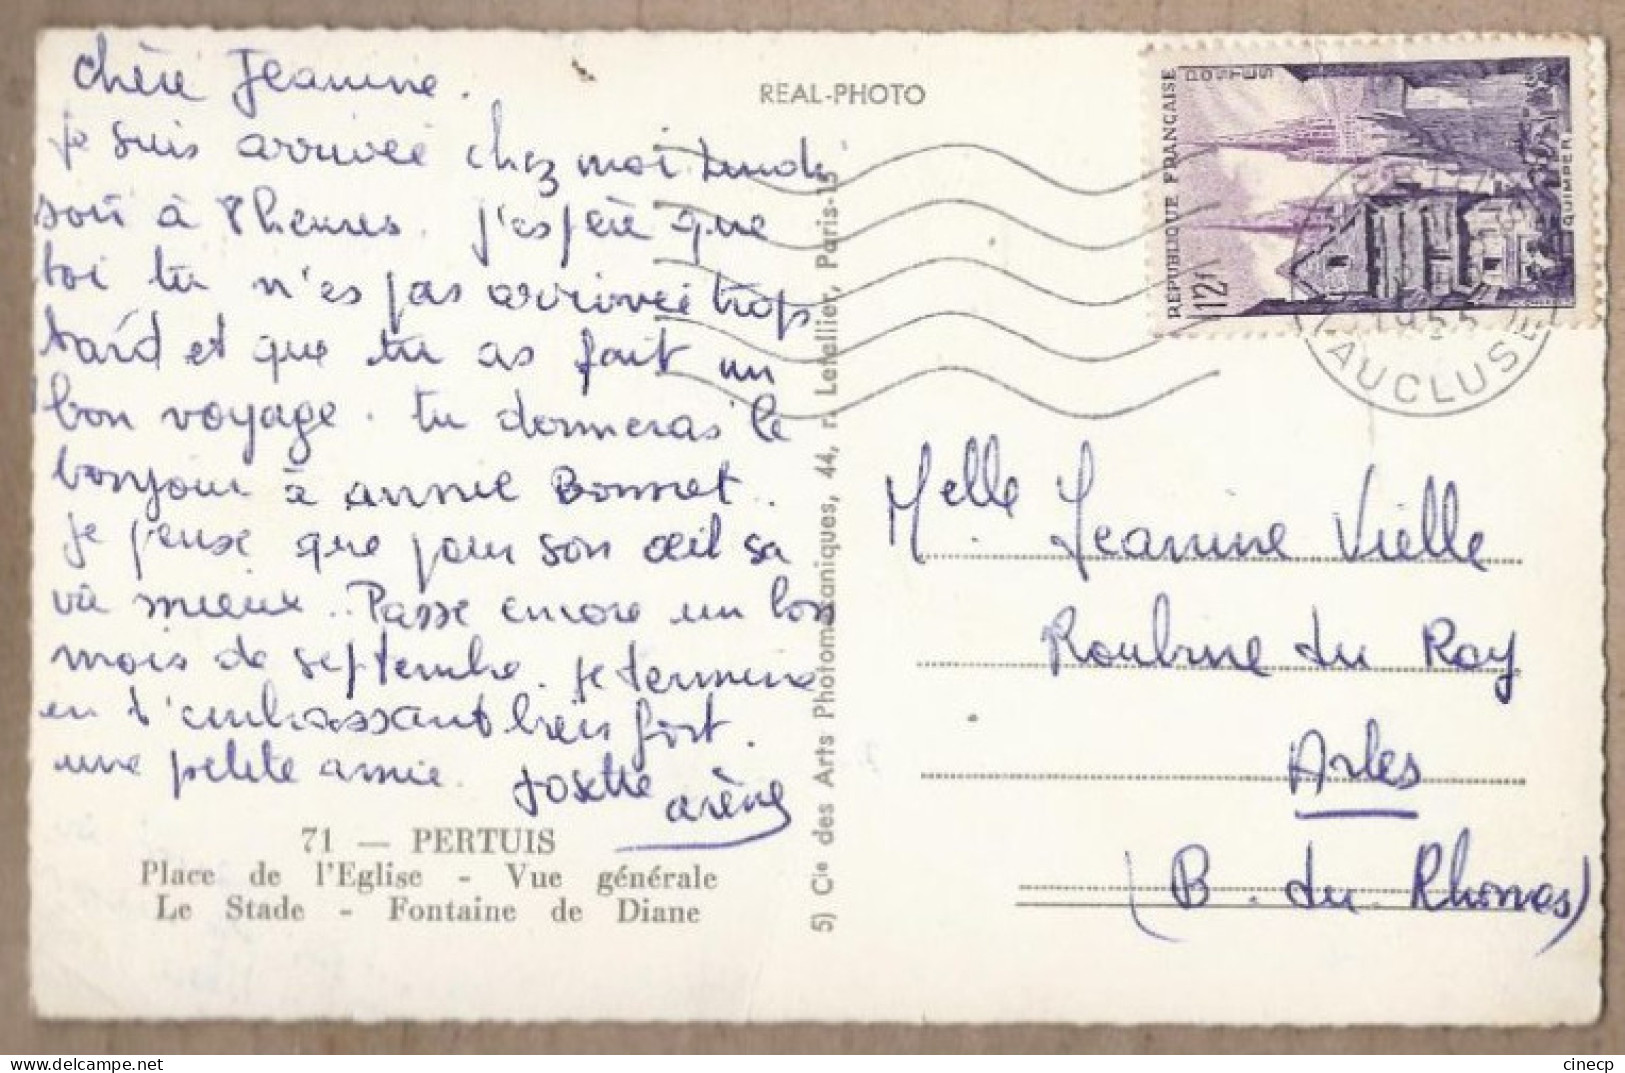 chère Jeanine.
je suis arrivée chez moi Lundi
soir à 8 heures. j'espère que
toi tu n'es pas arrivée trop
tard et que tu as fait un
bon voyage. tu donneras le
bonjour à annie Bonnet.
je pense que pour son œil sa
va mieux.. Passe encore un bon
mois de septembre. je termine
en t'embrassant bien fort.
une petite amie. Josette
arène
71 — PERTUIS
Place de l'Eglise - Vue générale
Le Stade - Fontaine de Diane
REAL-PHOTO
5) Cie des Arts Photomécaniques, 44, r. Letellier, Paris-15
REPUBLIQUE FRANÇAISE
POSTES
12f
QUIMPER
1955
VAUCLUSE
Melle. Jeanine Vielle
Roubine du Roy
Arles
(B. du. Rhones)
cinecp